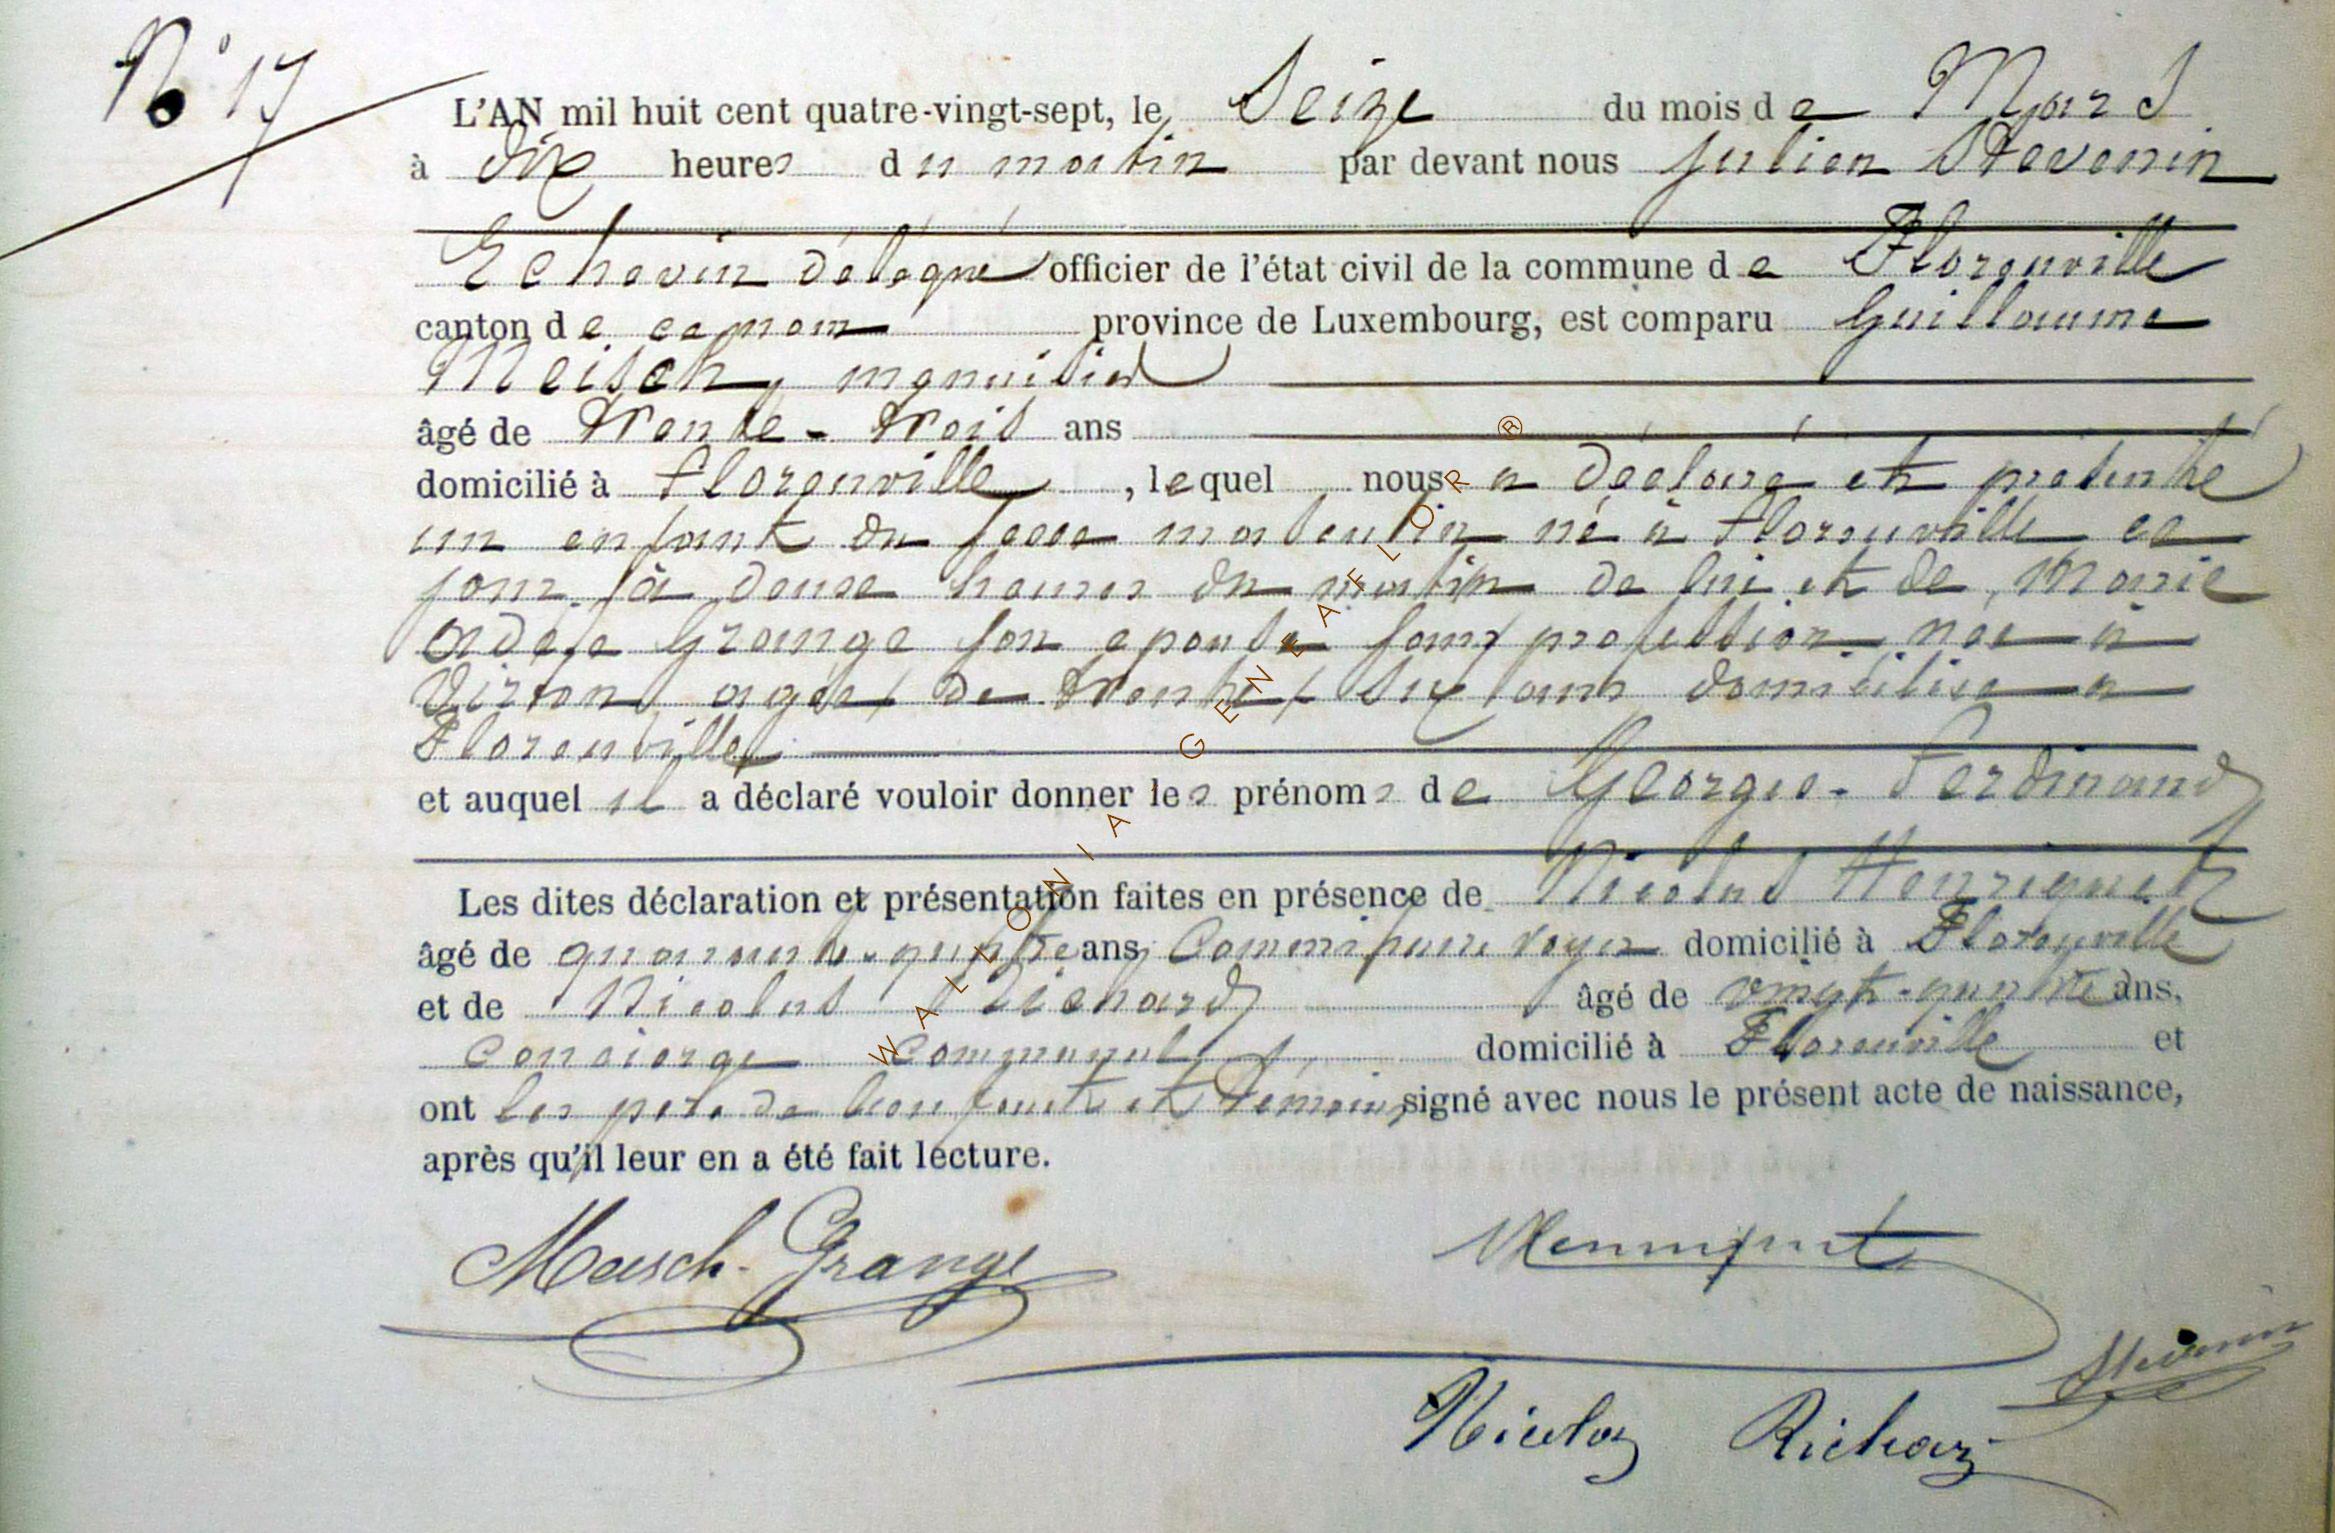 N° 17
L'AN mil huit cent quatre-vingt-sept, le Seize du mois de Mars
à dix heures du matin par devant nous Julien Stevenin
Echevin délégué officier de l'état civil de la commune de Florenville
canton de province de Luxembourg, est comparu Guillaume
Meisch, menuisier
âgé de trente-trois ans
domicilié à Florenville, lequel nous a déclaré et présenté
un enfant du sexe masculin né à Florenville ce
jour à deux heures du matin de lui et de Marie
Grange son epouse sans profession née à
Virton agée de trente six ans domiciliée a
Florenville
et auquel il a déclaré vouloir donner les prénoms de Georges-Ferdinand
Les dites déclaration et présentation faites en présence de Nicolas Henriquet
âgé de quarante-quatre ans, Commissaire voyer domicilié à Florenville
et de Nicolas Richard âgé de vingt-quatre ans,
concierge communal domicilié à Florenville et
ont les pere de l'enfant et témoins signé avec nous le présent acte de naissance,
après qu'il leur en a été fait lecture.
Meisch-Grange
Henriquet
Stevenin
Nicolas Richard
WALLONIA GENEAFLOR ®